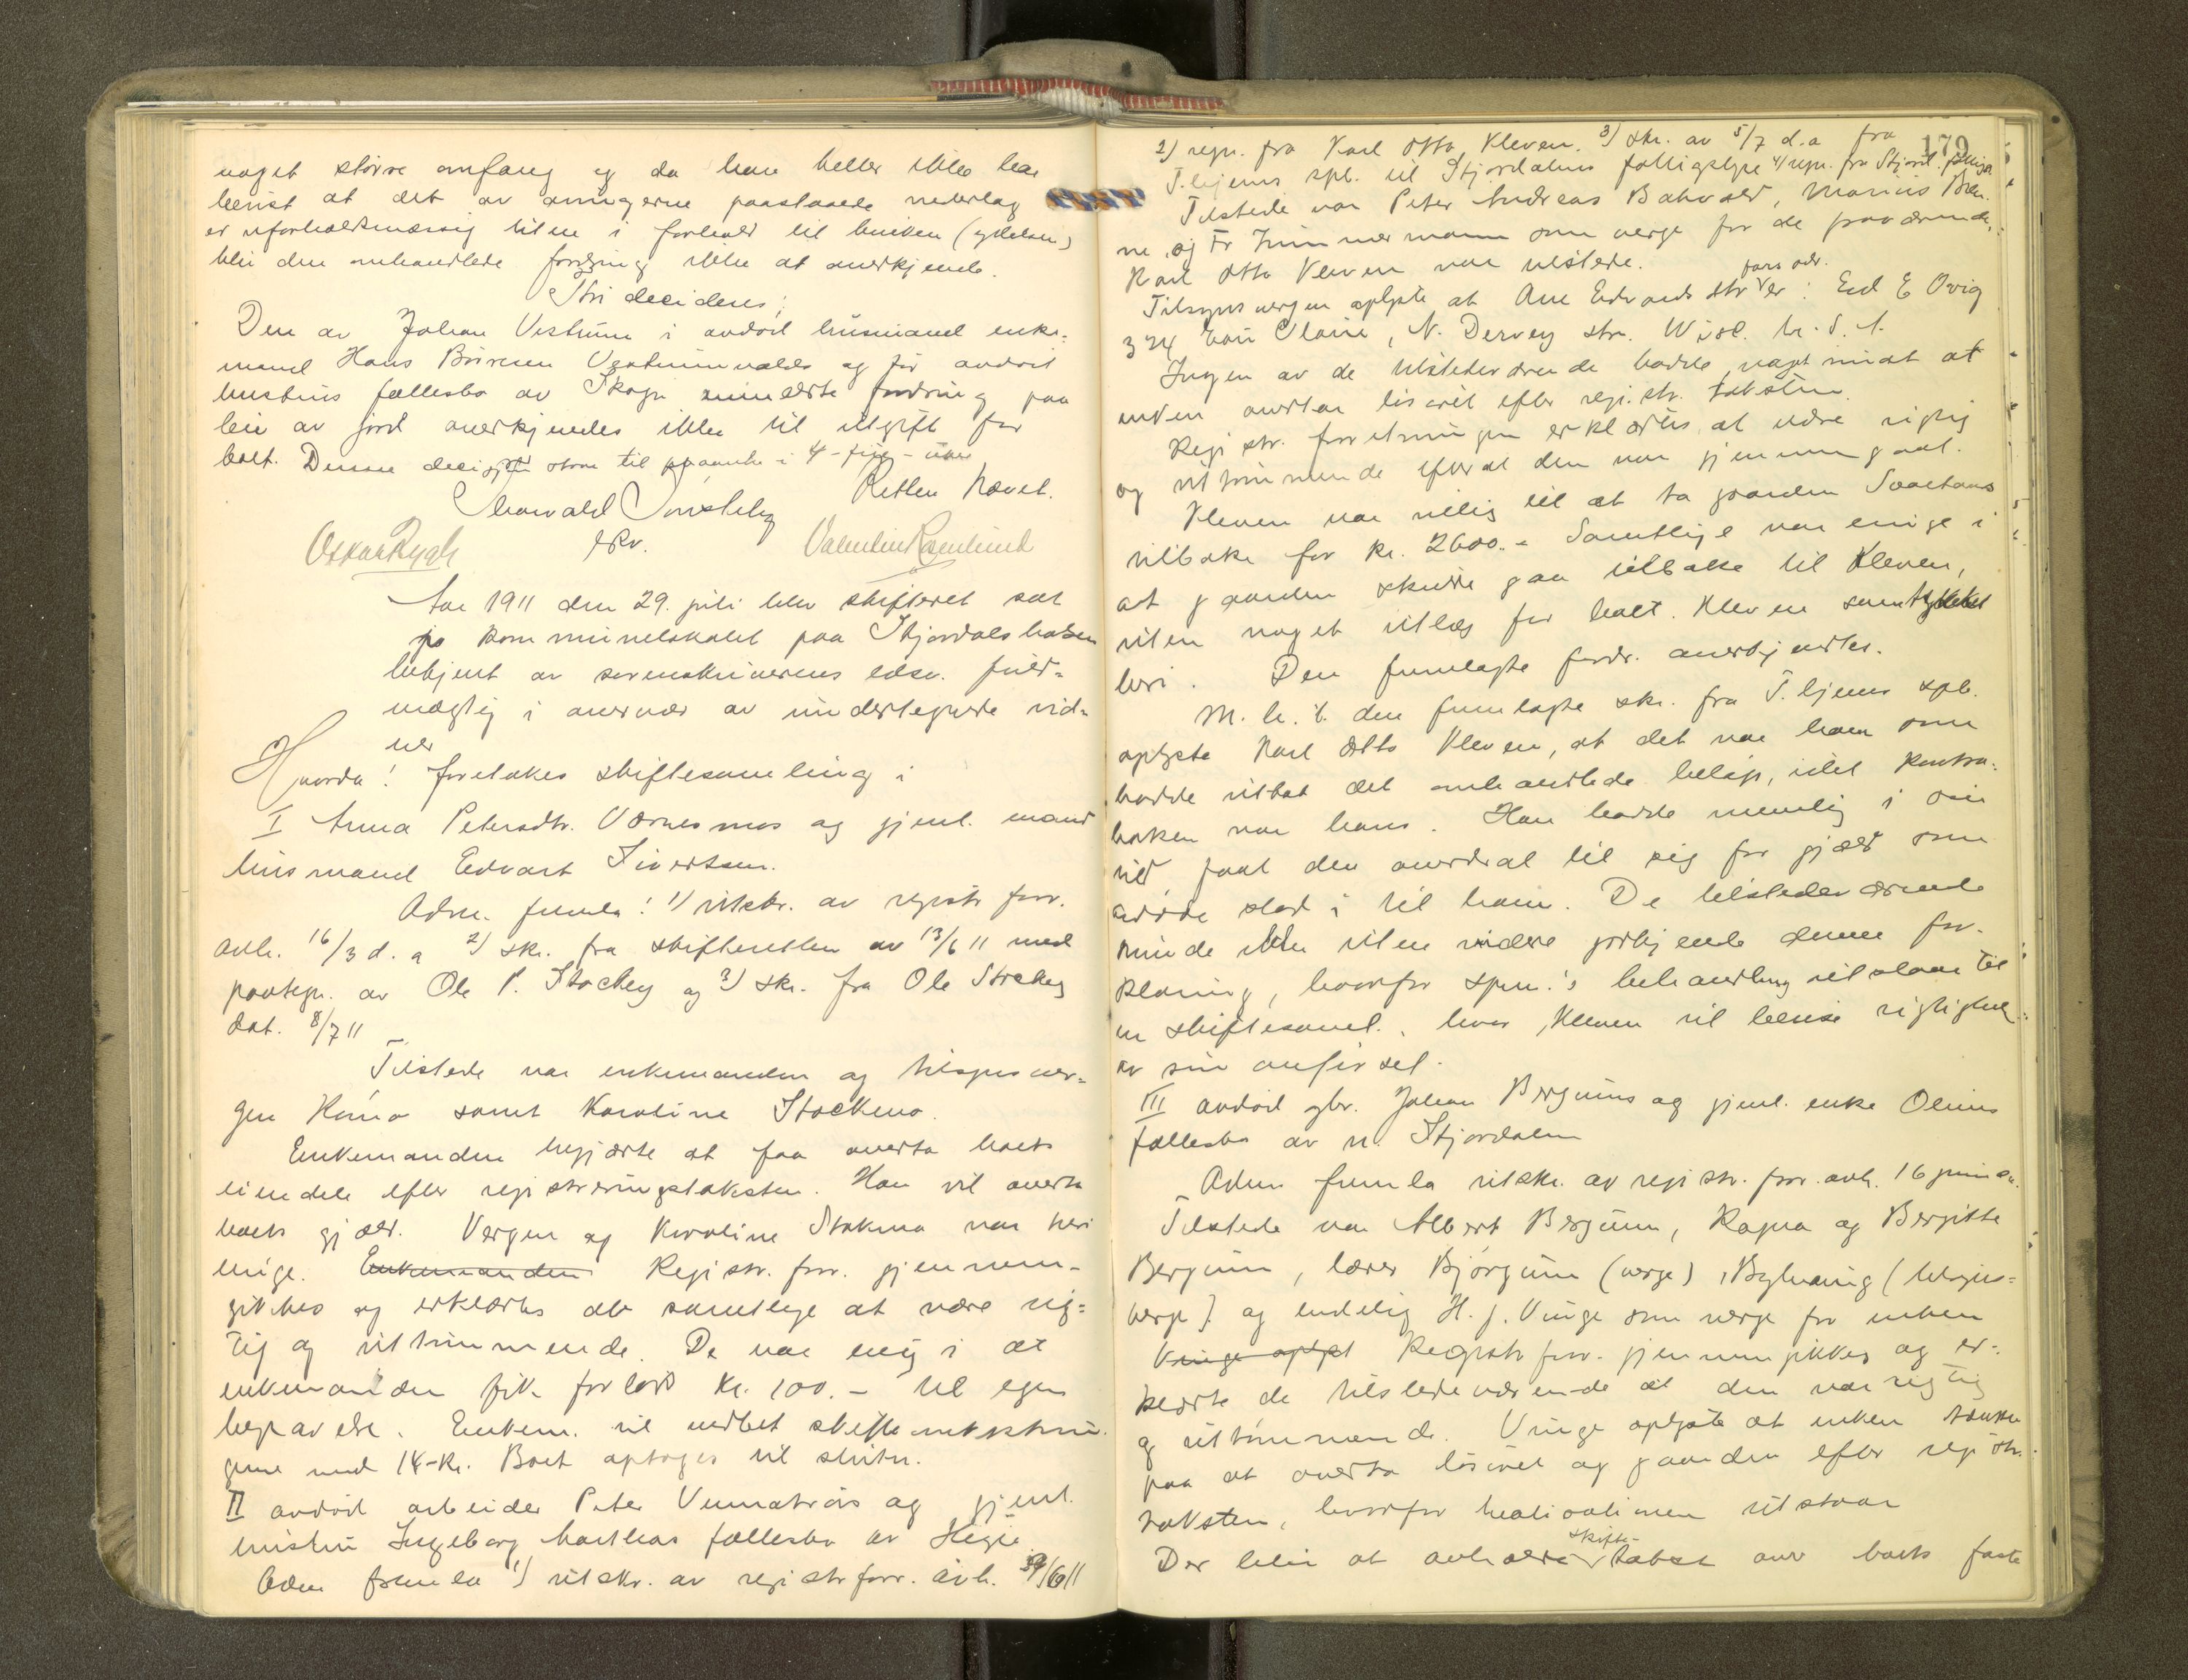 noget større omfang og da han heller ikke har
bevist at det av arvingerne paastaaede nederlag
er uforholdsmæssig litne i forhold til bruken (ydelsen)
blir den omhandlede fordring ikke at anerkjende.
Thi decideres:
Den av Johan Vestrum i avdød husmand enke-
mand Hans Vestrumvalds og før avdød
hustrus fællesbo av Skogn anmeldte fordring paa
leie av jord anerkjendes ikke til utgift for
boet. Denne decision staar til paaanke i 4 - fire - uker
Retten hævet.
Tharvald
Oskar Rygh
Aar 1911 den 29. juli blev skifteret sat
paa kommunelokalet paa Stjørdalshalsen
betjent av sorenskriverens edsv. fuld-
mægtig i overvær av undertegnede vid-
ner
Hvorda! foretokes skiftesamling i
I Anna Petersdtr. Værnesmo og gjenl. mand
husmand Edvart Sivertsen.
Adm. fremla: 1) utskr. av registr forr.
avh. 16/3 d. a 2) skr. fra skifteretten av 13/6 11 med
paategn. av Ole P. og 3) skr. fra Ole
dat. 8/7 11
Tilstede var enkemanden og tilsynsver-
gen samt Karoline
Enkemanden begjærte at faa overta boets
eiendele efter registreringstaksten. Han vil overta
boets gjæld. Vergen og Karoline var heri
enige. Enkemanden Registr. forr. gjennem-
gikkes og erklærtes av samtlige at være rig-
tig og uttømmende. De var enig i at
enkemanden fik forlods kr. 100.- til egen
begravelse. Enkem. vil
med 14-kr. Boet optoges til slutn.
II avdød arbeider Peter og gjenl.
hustru Ingeborg fællesbo av Hegre
Adm fremla 1) utskr. av registrforr. avh. /6 11
179
2) regn. fra Karl Otto Kleven. 3) skr. av 5/7 d.a fra
T.hjems spb. til Stjørdalens fattigstyre 4) regn. fra Stjørd. fattigv.
Tilstede var Peter Andreas Bakvold, Marius
ne og Fr Trimmermann som verge for de fraværende.
Karl Otto Kleven var tilstede.
Tilsynsvergen oplyste at Ane Edvards dtr fars adr. er: Ed E Ovig
324 Eau Claire, N. Dervey str. Wisc. U. S. A.
Ingen av de tilstedeværende hadde noget imot at
enken overtar løsøret efter registr. taksten.
Registr. forretningen erklærtes at være rigtig
og uttømmende efterat den var gjennemgaat.
Kleven var villig til at ta gaarden
tilbake for kr. 2600.- Samtlige var enige i
at gaarden skulde gaa tilbake til Kleven,
uten noget utlæg for boet. Kleven samtykket
heri. Den fremlagte fordr. anerkjendtes.
M. h. t. den fremlagte skr. fra T.hjems spb.
oplyste Karl Otto Kleven, at det var ham som
hadde uttat det omhandlede beløp, idet kontra-
boken var hans. Han hadde nemlig i sin
tid faat den overdrat til sig for gjæld som
avdøde stod i til ham. De tilstedeværende
kunde ikke uten videre godkjende denne for-
klaring, hvorfor spm.'s behandling utstaar til
en skiftesaml., hvor Kleven vil bevise rigtigheten
av sin anførsel.
III avdød gbr. Johan Bergums og gjenl. enke Olines
fællesbo av n. Stjørdalen
Adm fremla utskr. av registr. forr. avh. 16 juni d.a.
Tilstede var Albert Bergum, Ragna og Bergitte
Bergum, lærer Bjørgum (verge), (tilsyns-
verge) og endelig H. J. Vinge som verge for enken
Vinge oplyst Registrforr. gjennemgikkes og er-
klærte de tilstedeværende at den var rigtig
og uttømmende. Vinge oplyste at enken tænker
paa at overta løsøret og gaarden efter registr.
taksten, hvorfor realisationen utstaar
Der blir at avholde skifte- takst over boets faste